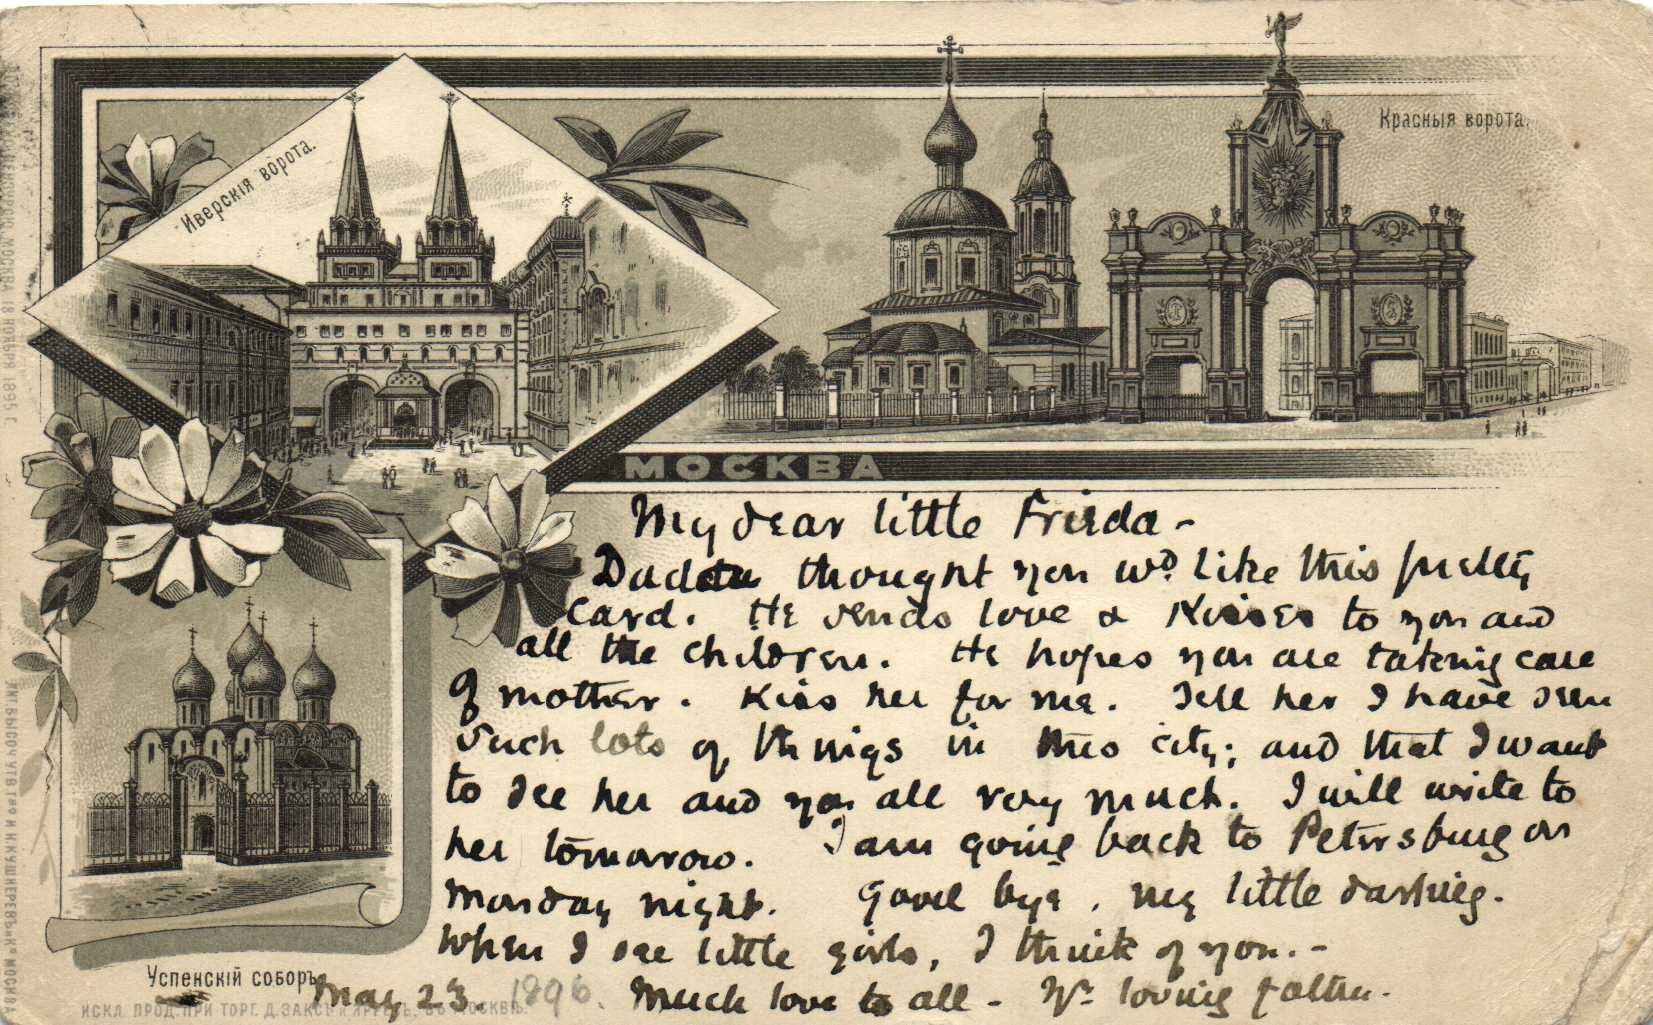 Иверскія ворота.
Красныя ворота.
МОСКВА
My dear little Frieda -
thought you wd. like this pretty
card. He sends love & Kisses to you and
all the children. He hopes you are taking care
of mother. Kiss her for me. Tell her I have seen
such lots of things in this city; and that I want
to see her and you all very much. I will write to
her tomorrow. I am going back to Petersburg on
Monday night. Good bye, my little darling.
When I see little girls, I think of you. -
Успенскій соборъ
May 23. 1896. Much love to all - Yr loving father.
МОСКВА 18 НОЯБРЯ 1895 г.
ИСКЛ. ПРОД. ПРИ ТОРГ. Д. ЗАКСЪ и ЯРРЕСЪ, ВЪ МОСКВѢ.